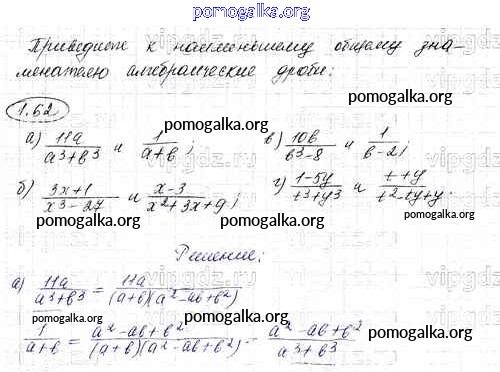 pomogalka.org
Приведите к наименьшему общему зна-
менателю алгебраические дроби:
1.62
pomogalka.org pomogalka.org
а) 11a/(a³+b³) и 1/(a+b); в) 10b/(b³-8) и 1/(b-2);
pomogalka.org pomogalka.org
б) (3x+1)/(x³-27) и (x-3)/(x²+3x+9); г) (1-5y)/(t³+y³) и (t+y)/(t²-ty+y.
pomogalka.org pomogalka.org
Решение:
pomogalka.org
а) 11a/(a³+b³) = 11a/((a+b)(a²-ab+b²))
pomogalka.org pomogalka.org
1/(a+b) = (a²-ab+b²)/((a+b)(a²-ab+b²)) = (a²-ab+b²)/(a³+b³)
pomogalka.org pomogalka.org